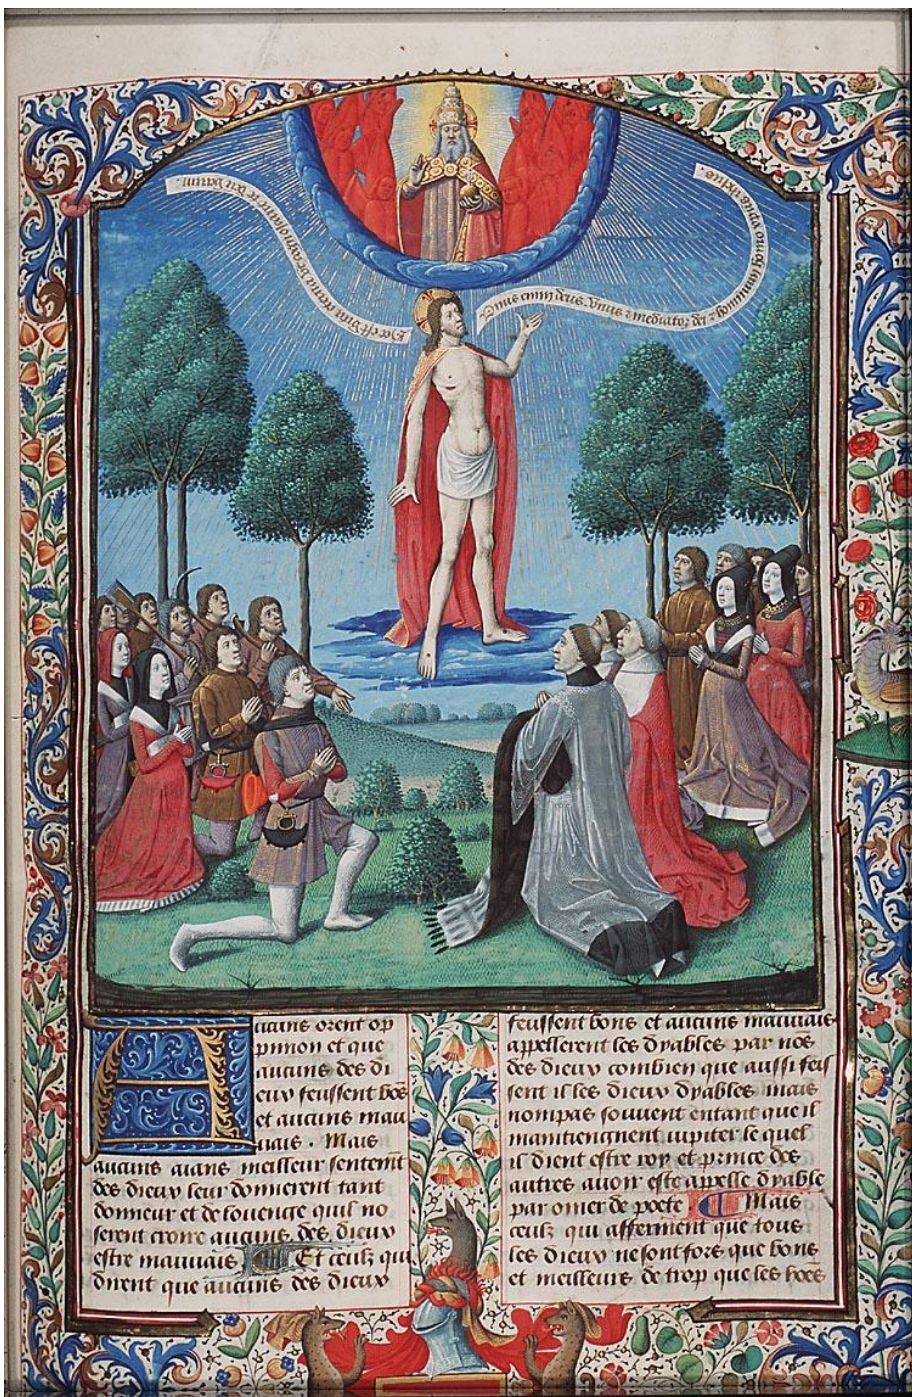 enim deus. Vnus
aucuns orent op
pinion et que
aucuns des di
eux feussent bos
et aucuns mau
uais. Mais
aucuns aians meilleur sentemt
des dieux leur donnerent tant
donneur et de louenge quil no
serent croire aucuns des dieux
estre mauuais Et ceulx qui
dirent que aucuns des dieux
feussent bons et aucuns mauuais
appellerent les dyables par nos
des dieux combien que aussi feis
sent il les dieux dyables mais
nompas souuent entant que il
maintiengnent iupiter le quel
il dient estre roy et prince des
autres auoir este appelle dyable
par omer de poete Mais
ceulx qui afferment que tous
les dieux ne sont fors que bons
et meilleurs de trop que les hoes